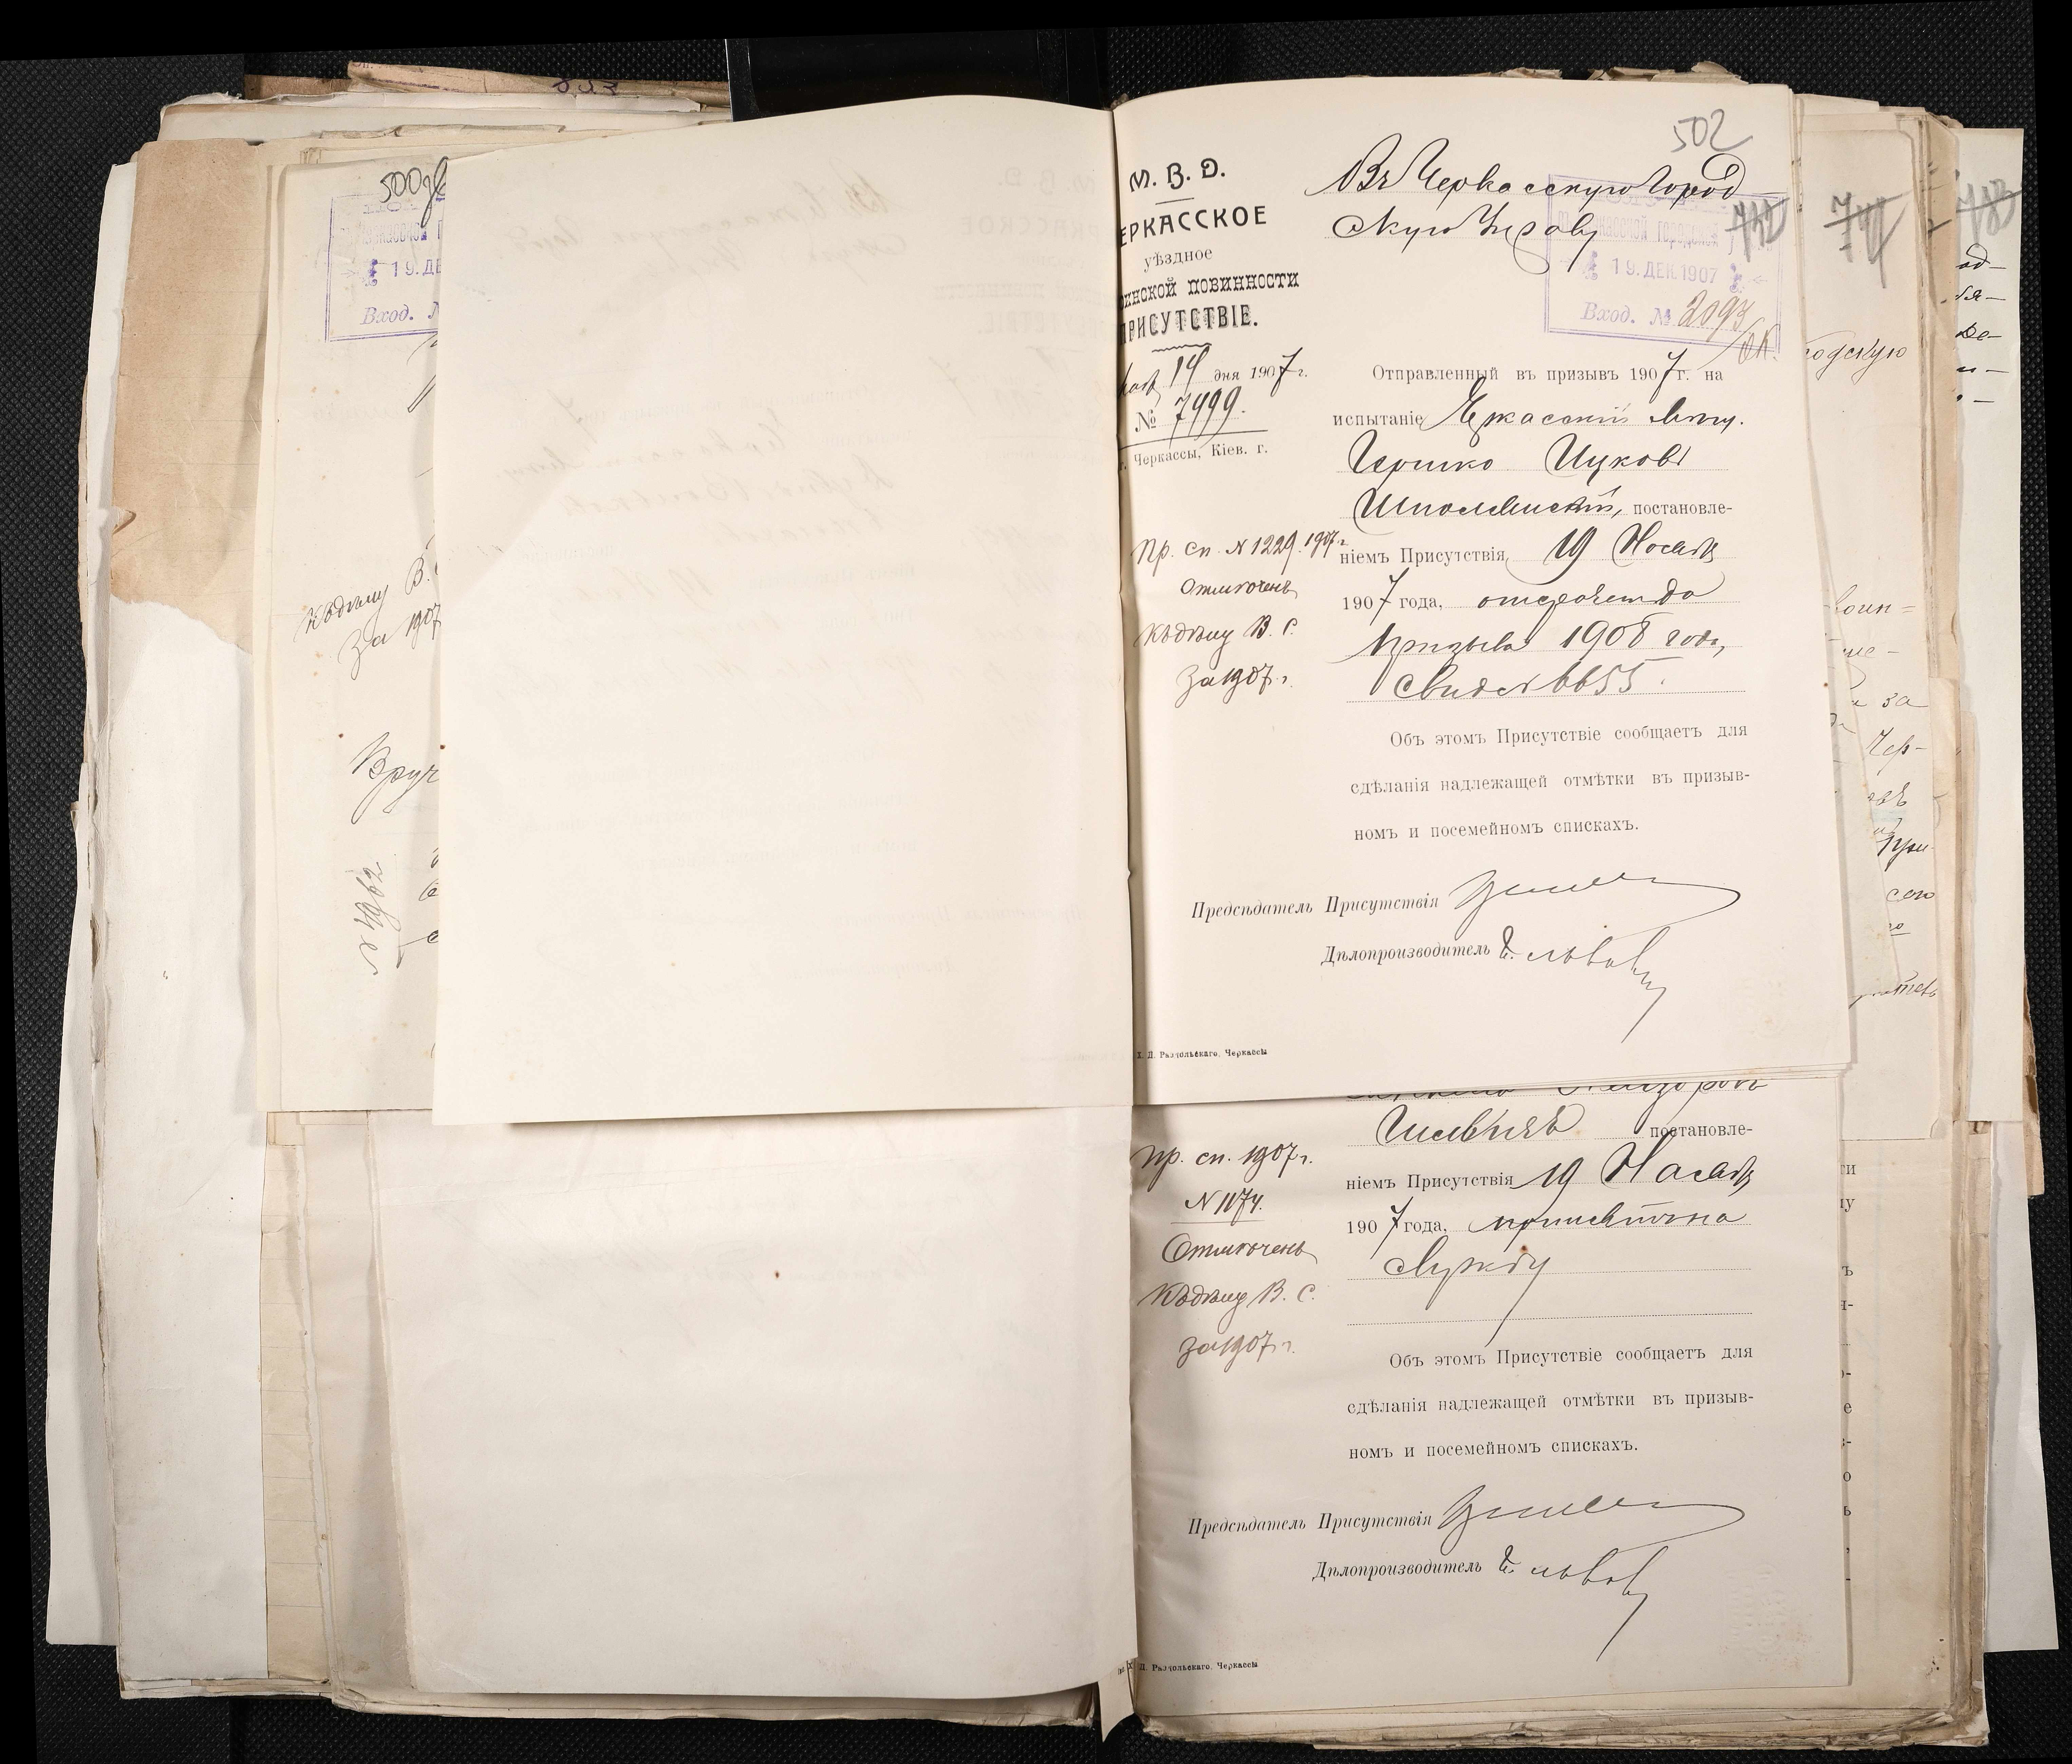 502
М. В. Д.
ЕРКАССКОЕ
уѣздное
инской повинности
ПРИСУТСТВІЕ.
14 дня 1907 г.
№ 7499.
Черкассы, Кіев. г.
Въ Черкасскую Город
скую Управу
19. ДЕК. 1907
Вход. № 2093
Отправленный въ призывъ 1907 г. на
испытаніе Черкасскій мѣщ.
Гершко Ицковъ
Шполянскій, постановле-
ніемъ Присутствія 19 Ноября
1907 года, отсроченъ до
призыва 1908 года,
свид. № 6655.
Пр. сп. № 1229. 1907 г.
Отмѣченъ
Къ дѣлу В. С.
за 1907 г.
Объ этомъ Присутствіе сообщаетъ для
сдѣланія надлежащей отмѣтки въ призыв-
номъ и посемейномъ спискахъ.
Предсѣдатель Присутствія
Дѣлопроизводитель
Х. Д. Раздольскаго, Черкассы
постановле-
ніемъ Присутствія 19 Ноября
1907 года, принятъ на
службу
Пр. сп. 1907 г.
№ 1174.
Отмѣченъ
Къ дѣлу В. С.
за 1907 г.
Объ этомъ Присутствіе сообщаетъ для
сдѣланія надлежащей отмѣтки въ призыв-
номъ и посемейномъ спискахъ.
Предсѣдатель Присутствія
Дѣлопроизводитель
Д. Раздольскаго, Черкассы
500
19. ДЕ
Вход. №
Къ дѣлу В.
за 1907
Вруч